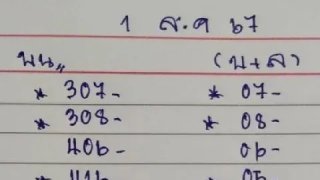 1 ส.ค 67
บน,, (บ+ล)
* 307- * 07-
* 308- * 08-
406- 06-